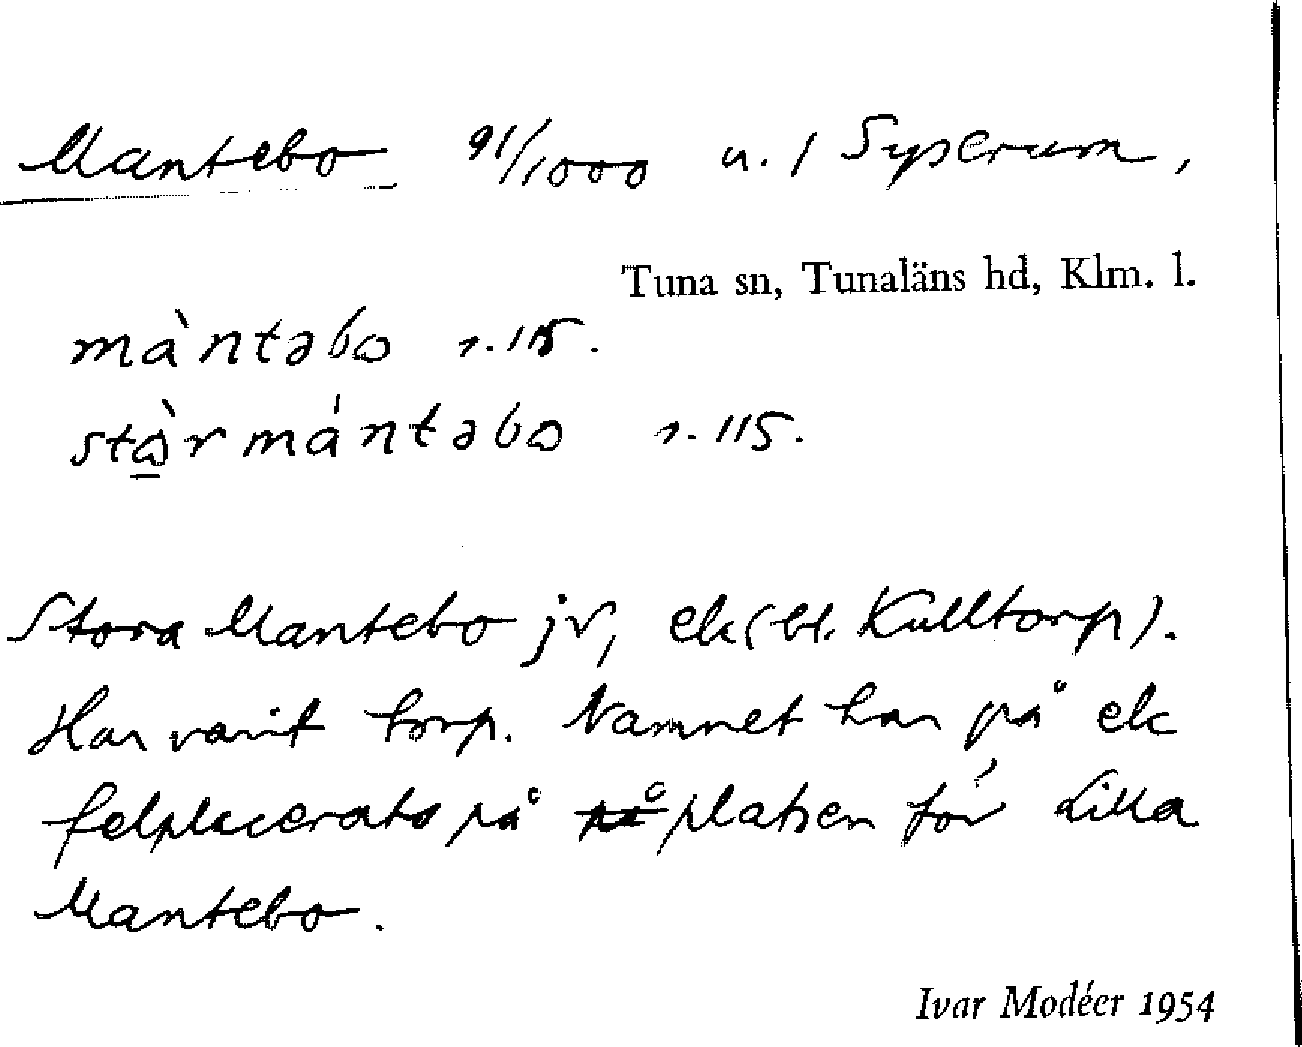 Mantebo 91/1000 u. 1 Syserum,
Tuna sn, Tunaläns hd, Klm. l.
màntəbo s. 115.
stòr mántəbo s. 115.
Stora Mantebo jr, ek (bl. Kulltorp).
Har varit torp. Namnet har på ek
felplacerats på på platsen för Lilla
Mantebo.
Ivar Modéer 1954